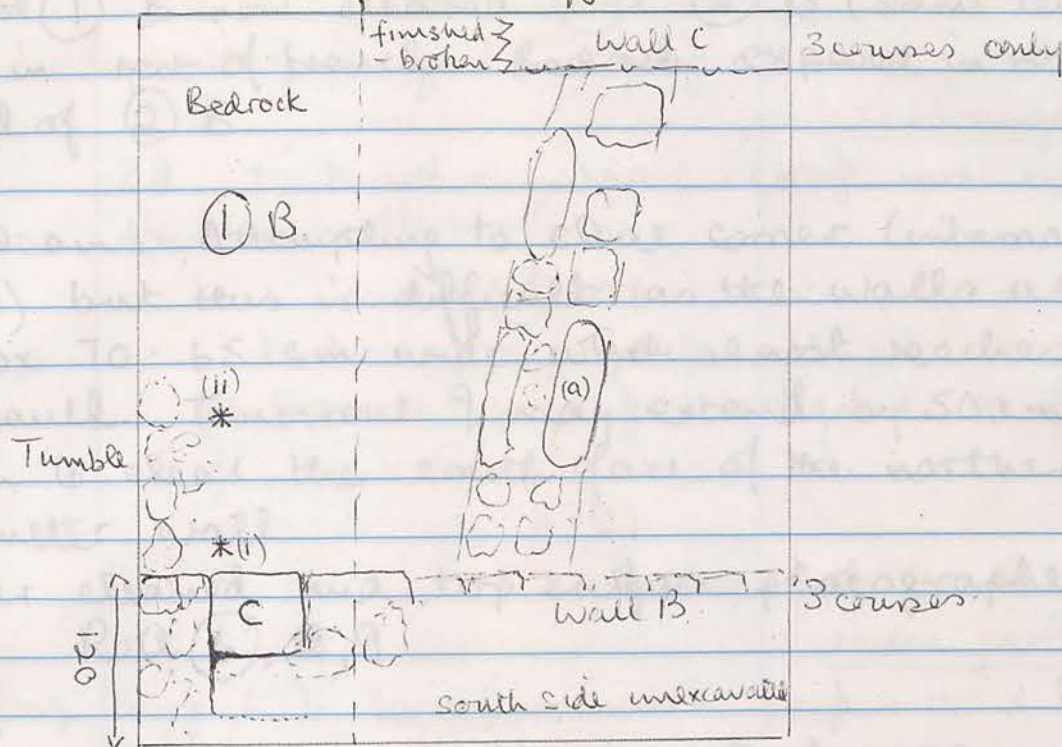 finished
- broken
Wall C
3 courses only
Bedrock
① B
(ii)
*
(a)
Tumble
*(i)
C
Wall B.
3 courses.
120
South Side unexcavated